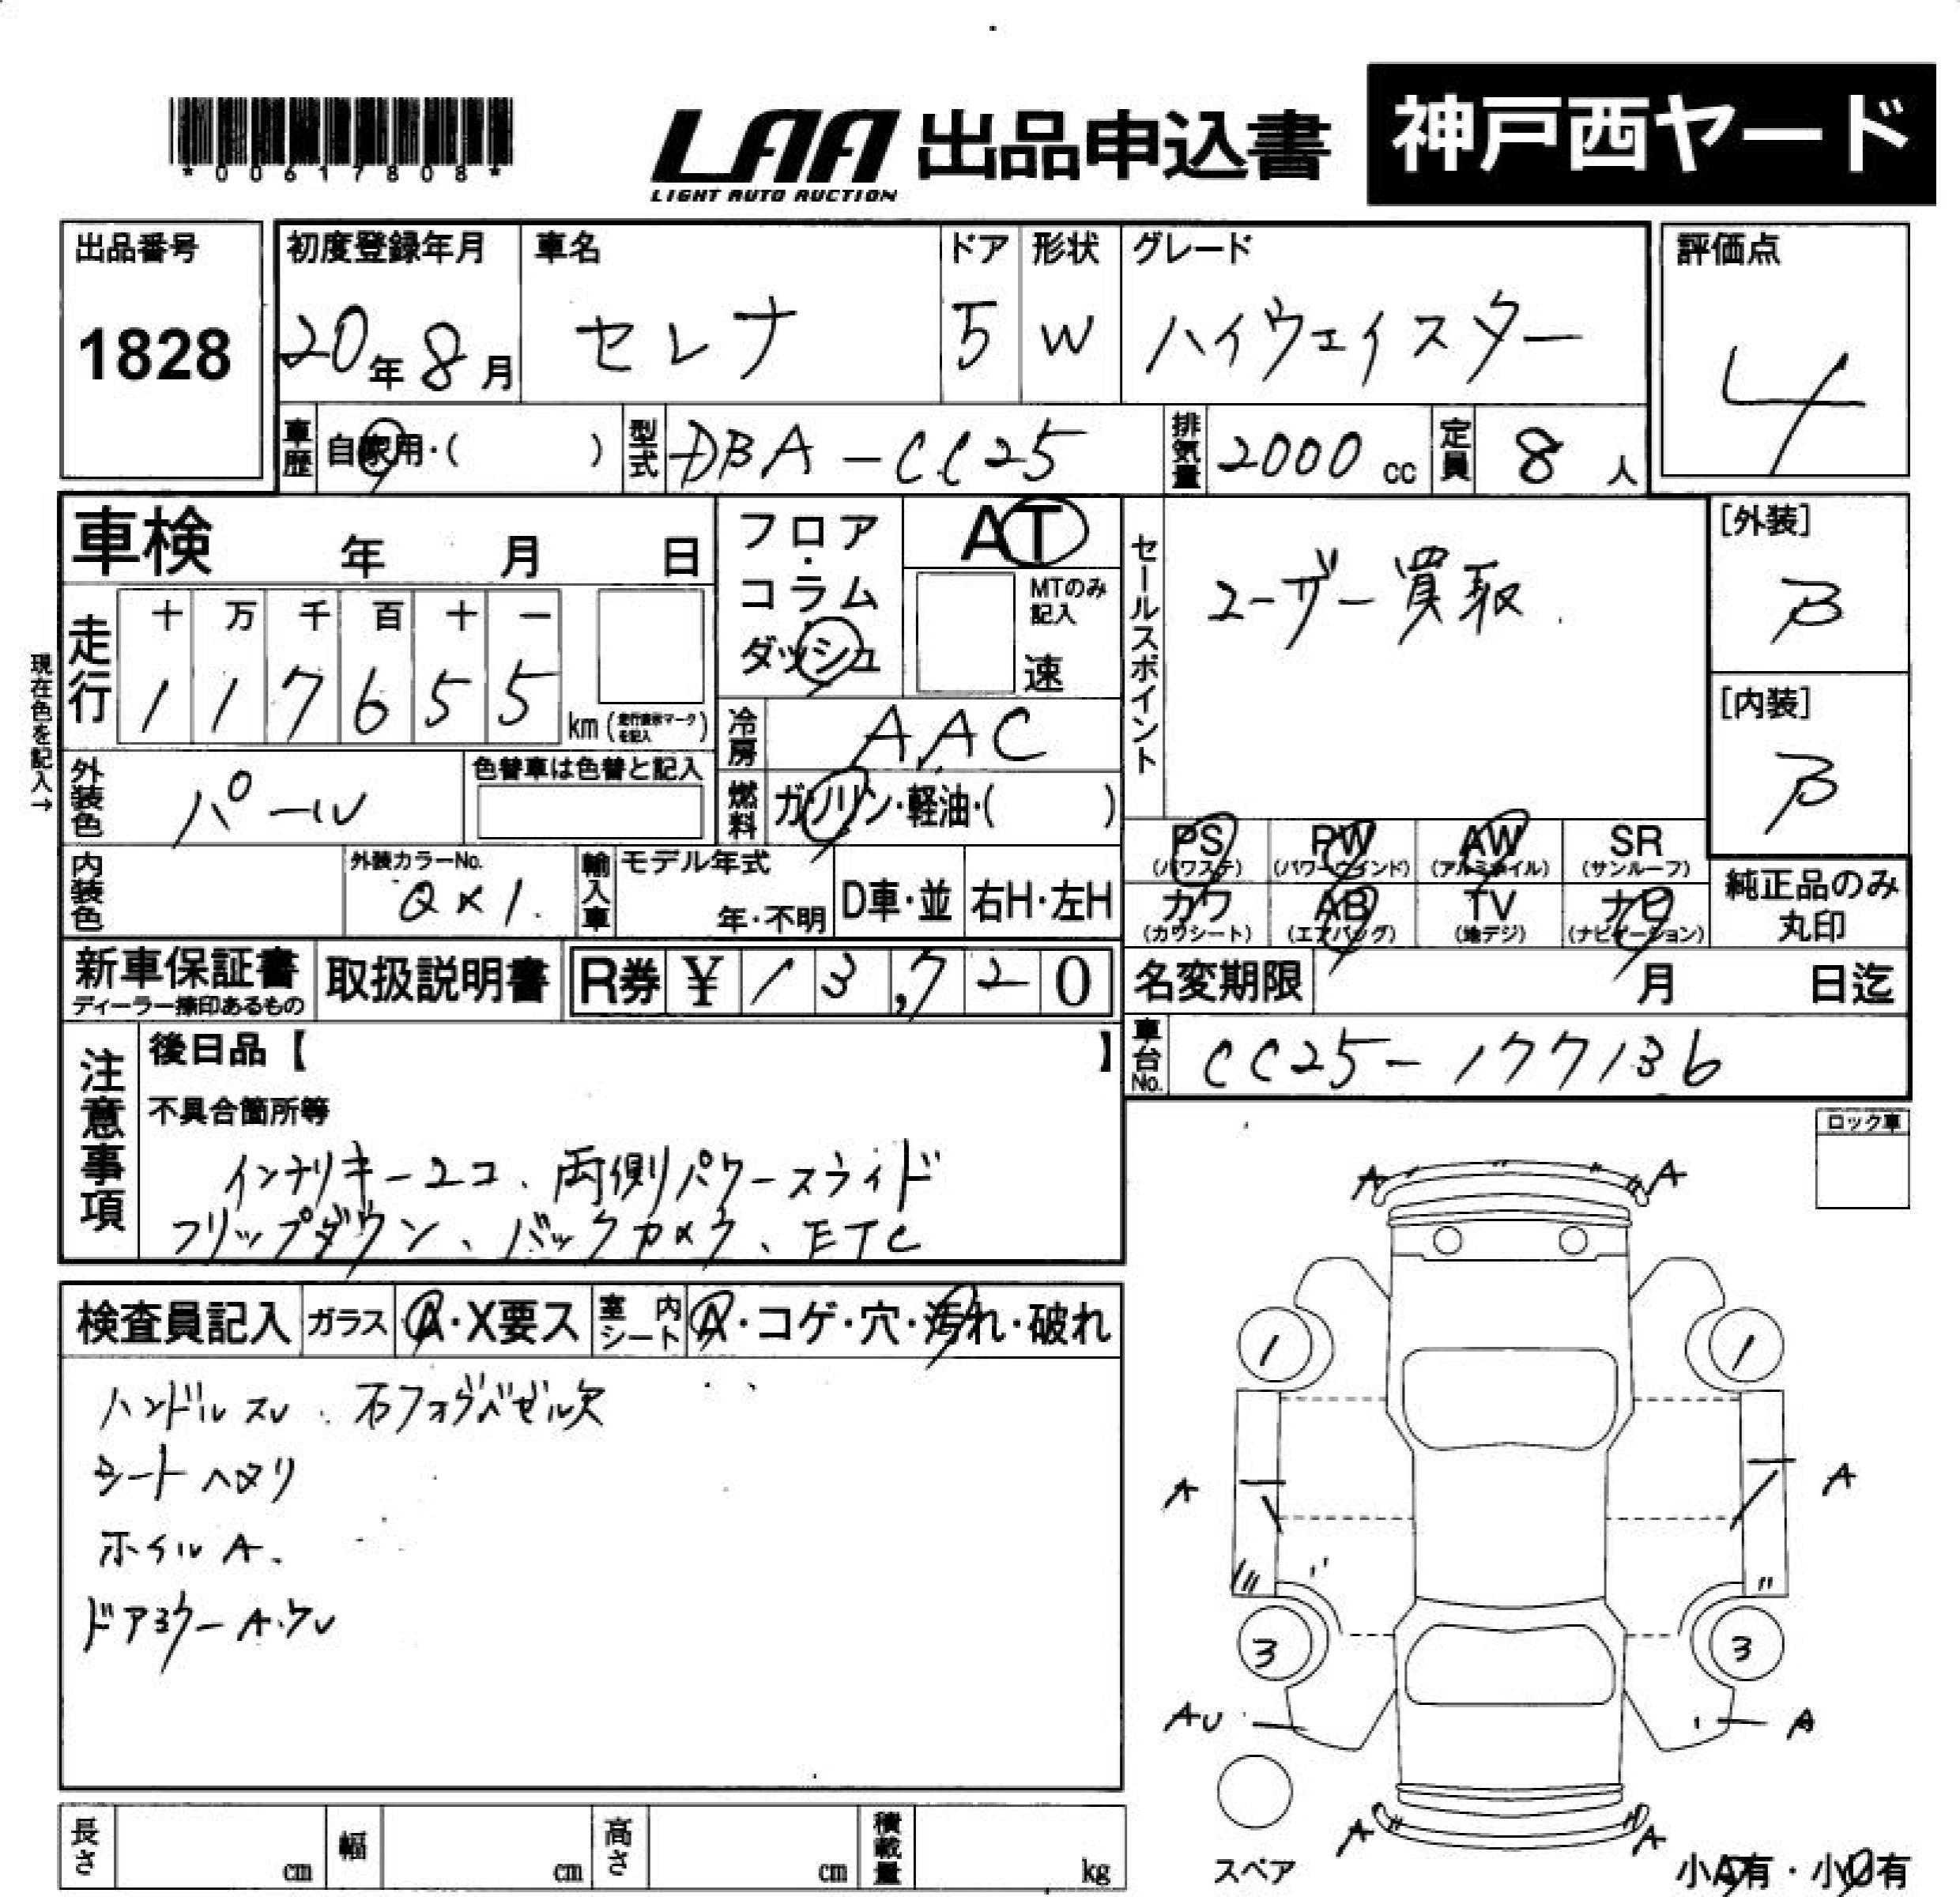 *00617808*
LAA 出品申込書 神戸西ヤード
LIGHT AUTO AUCTION
出品番号 1828
初度登録年月 20年8月
車名 セレナ
ドア 5
形状 W
グレード ハイウェイスター
評価点 4
車歴 自家用・( )
型式 DBA-CC25
排気量 2000cc
定員 8人
車検 年 月 日
フロア・コラム・ダッシュ
AT
MTのみ記入
速
セールスポイント ユーザー買取.
[外装] B
[内装] B
現在色を記入→
走行 十 万 千 百 十 一
1 1 7 6 5 5 km
冷房 AAC
外装色 パール
色替車は色替と記入
燃料 ガソリン・軽油・( )
内装色
外装カラーNo. QX1.
輸入車 モデル年式 年・不明
D車・並 右H・左H
PS (パワステ) PW (パワーウインド) AW (アルミホイル) SR (サンルーフ)
カワ (カワシート) AB (エアバッグ) TV (地デジ) ナビ (ナビゲーション)
純正品のみ丸印
新車保証書
ディーラー捺印あるもの
取扱説明書
R券 ¥13,720
名変期限 月 日迄
車台No. CC25-177136
注意事項
後日品【 】
不具合箇所等
インテリキー2コ、両側パワースライド
フリップダウン、バックカメラ、ETC
ロック車
検査員記入 ガラス A・X要ス 室内シート A・コゲ・穴・汚れ・破れ
ハンドルスレ. 右フォグベゼル欠
シートヘタリ
ホイルA.
ドアミラーA.ケレ
A A
1 1
A A
3 3
AU A
A A
スペア
小A有・小U有
長さ cm 幅 cm 高さ cm 積載量 kg